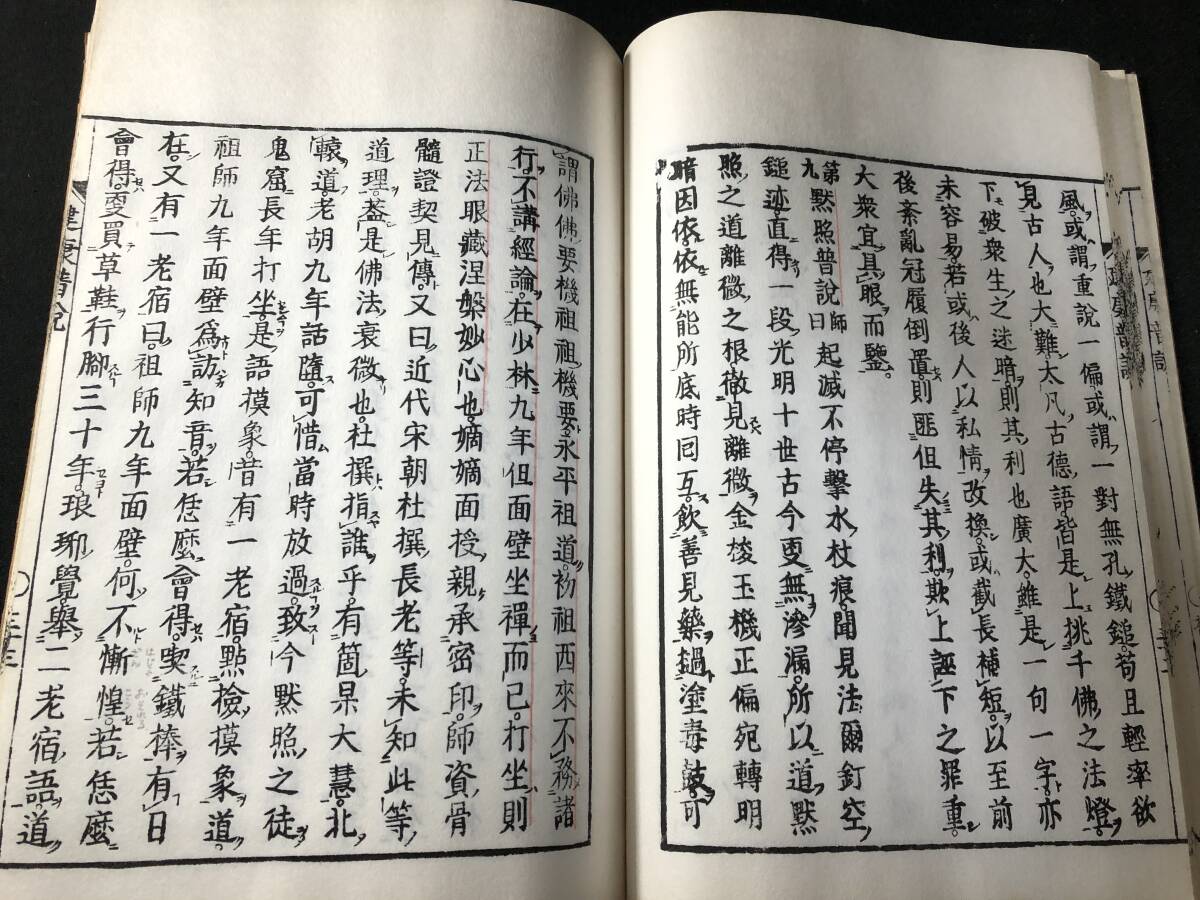 風。或謂重說一偏。或謂一對無孔鐵鎚。苟且輕率欲
見古人也大難。大凡古德語。皆是上挑千佛之法燈。
下破衆生之迷暗。則其利也廣大。雖是一句一字。亦
未容易。若或後人以私情改換。或截長補短。以至前
後紊亂冠履倒置。則匪但失其利。欺上誣下之罪重。
大衆宜具眼而鑒。
第九默照普說師曰起滅不停擊水杖痕。聞見法爾釘空
鎚迹。直得一段光明十世古今更無滲漏。所以道默
照之道離微之根。徹見離微。金梭玉機正偏宛轉明
暗因依。依無能所底時囘互。飲善見藥。撾塗毒鼓。可
謂佛佛要機祖祖機要。永平祖道。初祖西來不務諸
行。不講經論。在少林九年但面壁坐禪而已。打坐則
正法眼藏涅槃妙心也。嫡嫡面授。親承密印。師資骨
髓證契見傳。又曰近代宋朝杜撰長老等。未知此等
道理。蓋是佛法衰微也。杜撰指誰乎。有箇杲大慧。北
轅道。老胡九年話墮。可惜當時放過。致今默照之徒
鬼窟長年打坐。是語摸象。昔有一老宿。點檢摸象道。
祖師九年面壁爲訪知音。若恁麼會得。喫鐵棒有日
在。又有一老宿曰。祖師九年面壁。何不慚惶。若恁麼
會得。更買草鞋行腳三十年。琅琊覺舉二老宿語道
建康普說